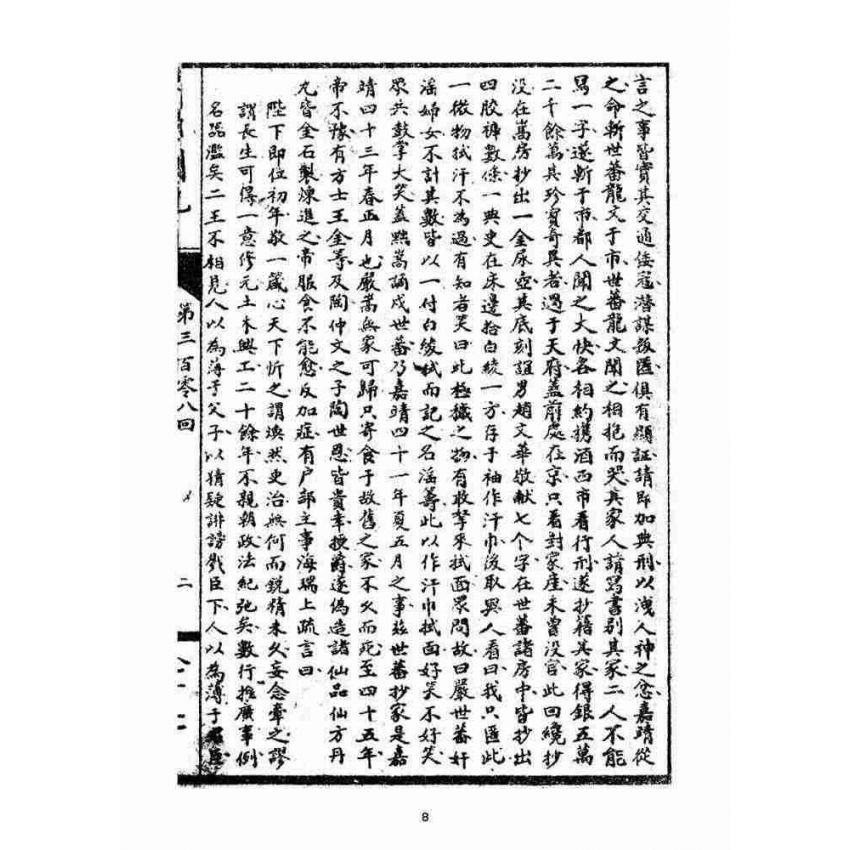 言之事皆實其交通倭寇潛謀叛匪俱有顕証請即加典刑以洩人神之愈嘉靖從
之命斬世蕃龍文于市世蕃龍文聞之相抱而哭其家人請寫書别其家二人不能
寫一字遂斬于市都人聞之大快各相約携酒西市看行刑遂抄籍其家得銀五萬
二千餘萬其珍寳奇異若過于天府蓋前處在京只看封家産未曾没官此回纔抄
没在嵩房抄出一金尿壺其底刻誼男趙文華敬献七个字在世蕃諸房中皆抄出
四股褲數條一典史在床邊拾白綾一方存于袖作汗巾後取與人看曰我只匿此
一微物拭汗不為過有知者笑曰此極穢之物有敢拏來拭面眾問故曰嚴世蕃奸
滛婦女不計其數皆以一付白綾拭而記之名滛籌此以作汗巾拭面好笑不好笑
眾共鼓掌大笑蓋黜嵩誦戍世蕃乃嘉靖四十一年夏五月之事茲世蕃抄家是嘉
靖四十三年春正月也嚴嵩無家可歸只寄食于故舊之家不久而死至四十五年
帝不豫有方士王金等及陶仲文之子陶世恩皆貴幸授爵遂偽造諸仙品仙方丹
丸皆金石製煉進之帝服食不能愈反加症有户部主事海瑞上疏言曰
陛下即位初年敬一箴心天下忻之謂渙然吏治無何而銳精未久妄念牽之謬
謂長生可得一意修元土木興工二十餘年不親朝政法紀弛矣數行推廣事例
名器濫矣二王不相見人以為薄于父子以猜疑誹謗戮臣下人以為薄于君臣
第三百零八回
二
8